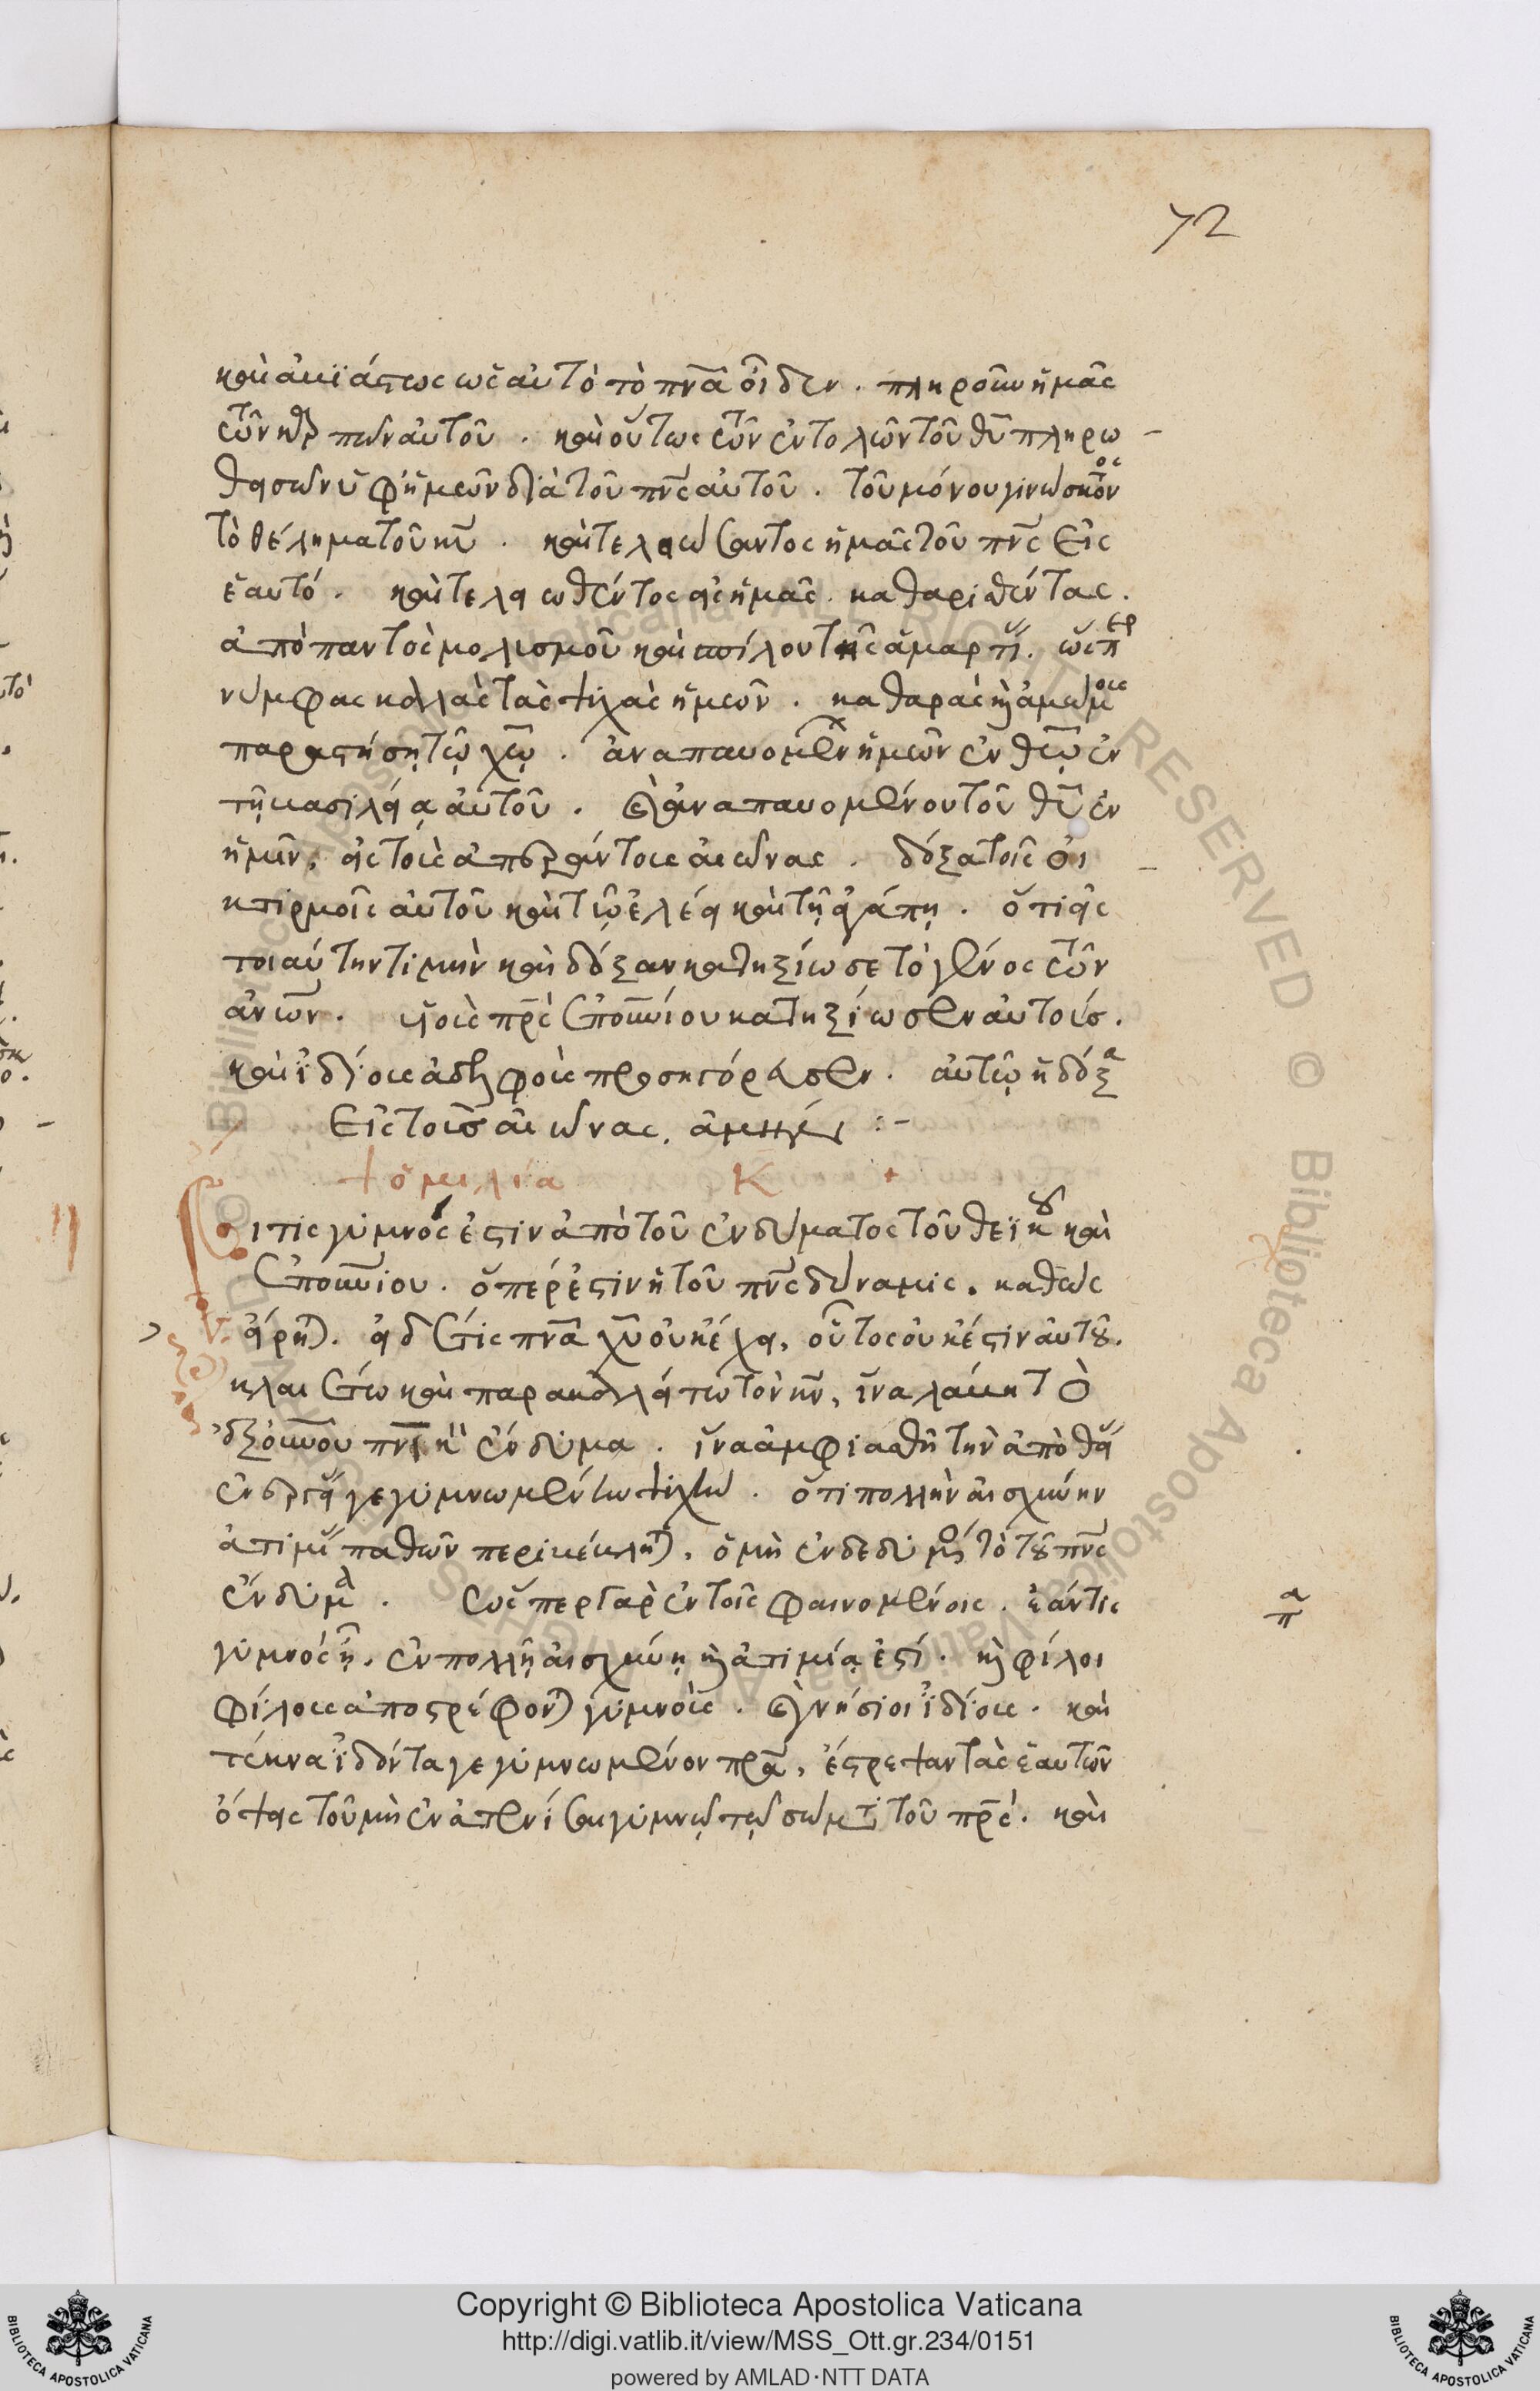 72
καὶ ἀβιάστως ὡς αὐτὸ τὸ πν̅α οἶδεν. πληροῦν ἡμᾶς
τῶν καρπῶν αὐτοῦ. καὶ οὕτως τῶν ἐντολῶν τοῦ θυ̅ πληρω
θεισῶν ὑφ' ἡμῶν διὰ τοῦ πν̅ς αὐτοῦ. τοῦ μόνου γινώσκοντος
τὸ θέλημα τοῦ κυ̅. καὶ τελειώσαντος ἡμᾶς τοῦ πν̅ς εἰς
ἑαυτό. καὶ τελειωθέντος εἰς ἡμᾶς. καθαρισθέντας.
ἀπὸ παντὸς μολυσμοῦ καὶ σπίλου τῆς ἁμαρτί. ὥσπερ
νύμφας καλλὰς τὰς ψυχὰς ἡμῶν. καθαρὰς κ ἀμώμους
παραστήσῃ τῷ χω̅. ἀναπαυομένων ἡμῶν ἐν θεῷ ἐν
τῇ βασιλείᾳ αὐτοῦ. καὶ ἀναπαυομένου τοῦ θυ̅ ἐν
ἡμῖν, εἰς τοὺς ἀπεράντους αἰῶνας. δόξα τοῖς οἰ
κτιρμοῖς αὐτοῦ καὶ τῷ ἐλέει καὶ τῇ ἀγάπῃ. ὅτι εἰς
τοιαύτην τιμὴν καὶ δόξαν κατηξίωσε τὸ γένος τῶν
ἀν̅ων. υἱοὺς πρ̅ς ἐπουνίου κατηξίωσεν αὐτούς.
καὶ ἰδίους ἀδελφοὺς προσηγόρευσεν. αὐτῷ ἡ δόξα
Εἰς τοὺς αἰῶνας. ἀμήν :-
+ ὁμιλία Κ +
Εἴ τις γυμνός ἐστιν ἀπὸ τοῦ ἐνδύματος τοῦ θεϊκοῦ καὶ
ἐπουνίου. ὅπερ ἐστὶν ἡ τοῦ πν̅ς δύναμις. καθὼς
εἴρητ. εἰ δέ τις πν̅α χυ̅ οὐκ ἔχει, οὗτος οὐκ ἔστιν αὐτοῦ.
κλαιέτω καὶ παρακαλείτω τὸν κν̅, ἵνα λάβῃ τὸ
ἐξ οὐνοῦ πν̅ικ ἔνδυμα. ἵνα ἀμφιασθῇ τὴν ἀπὸ θεί
ἐνεργεί γεγυμνωμένην ψυχήν. ὅτι πολλὴν αἰσχύνην
ἀτιμί παθῶν περιβέβλητ. ὁ μὴ ἐνδεδυμένος τὸ τοῦ πν̅ς
ἔνδυμα. ὥσπερ γὰρ ἐν τοῖς φαινομένοις. ἐάν τις
γυμνὸς ᾖ. ἐν πολλῇ αἰσχύνῃ κ ἀτιμίᾳ ἐστί. κ φίλοι
φίλους ἀποστρέφοντ γυμνούς. καὶ γνήσιοι ἰδίους. καὶ
τέκνα ἰδόντα γεγυμνωμένον πρα̅, ἔστρεψαν τὰς ἑαυτῶν
ὄψεις τοῦ μὴ ἐναπενίσαι γυμνῷ τῷ σώματι τοῦ πρ̅ς. καὶ
Copyright © Biblioteca Apostolica Vaticana
http://digi.vatlib.it/view/MSS_Ott.gr.234/0151
powered by AMLAD·NTT DATA